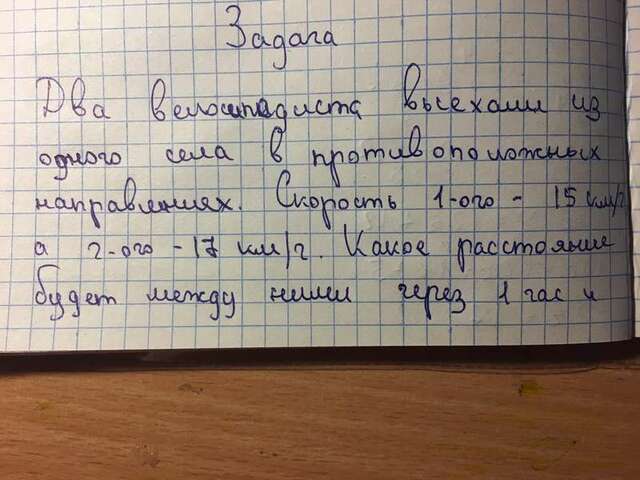 Задача
Два велосипедиста выехали из
одного села в противоположных
направлениях. Скорость 1-ого - 15 км/ч
а 2-ого - 17 км/ч. Какое расстояние
будет между ними через 1 час и